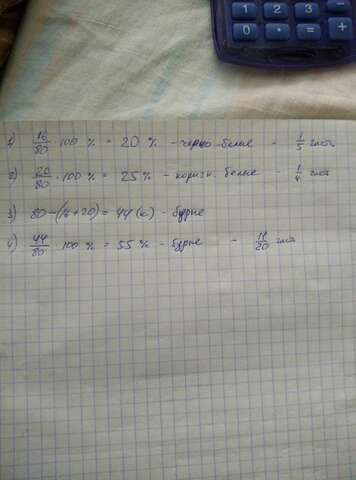 1 2 3 -
0 • = +
1) 16/80 · 100 % = 20 % - черно-белые - 1/5 часть
2) 20/80 · 100 % = 25 % - коричн. белые - 1/4 часть
3) 80-(16+20) = 44 (к) - бурые
4) 44/80 · 100 % = 55 % - бурые - 11/20 часть